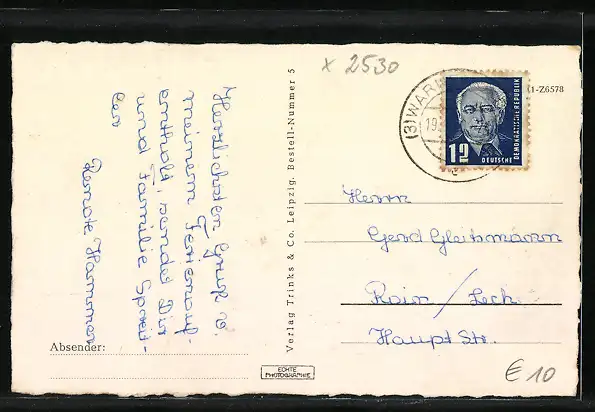 x 2530
Herzlichsten Gruß v.
meinem Ferienauf-
enthalt, sendet Dir
und Familie
Renate Hammer
Absender:
Verlag Trinks & Co. Leipzig, Bestell-Nummer 5
ECHTE
PHOTOGRAPHIE
(3) WAR
19.
12
DEUTSCHE
DEMOKRATISCHE REPUBLIK
1-Z6578
Herrn
Gerd Gleitsmann
Rain / Lech
Haupt Str.
€ 10